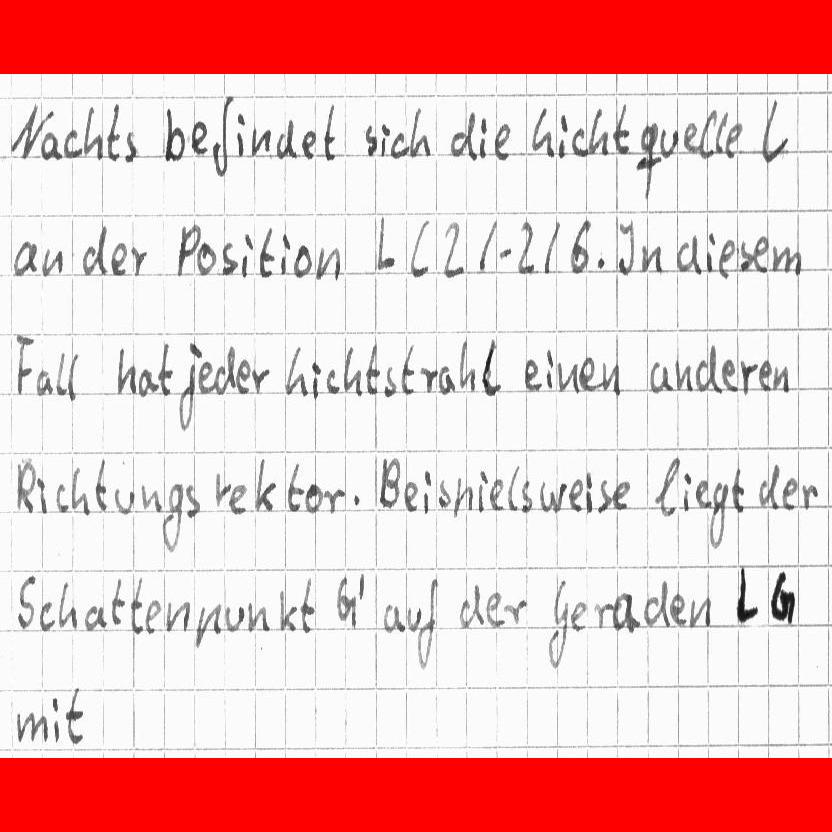 Nachts befindet sich die Lichtquelle L
an der Position L(2/-2/6. In diesem
Fall hat jeder Lichtstrahl einen anderen
Richtungsvektor. Beispielsweise liegt der
Schattenpunkt G' auf der Geraden LG
mit